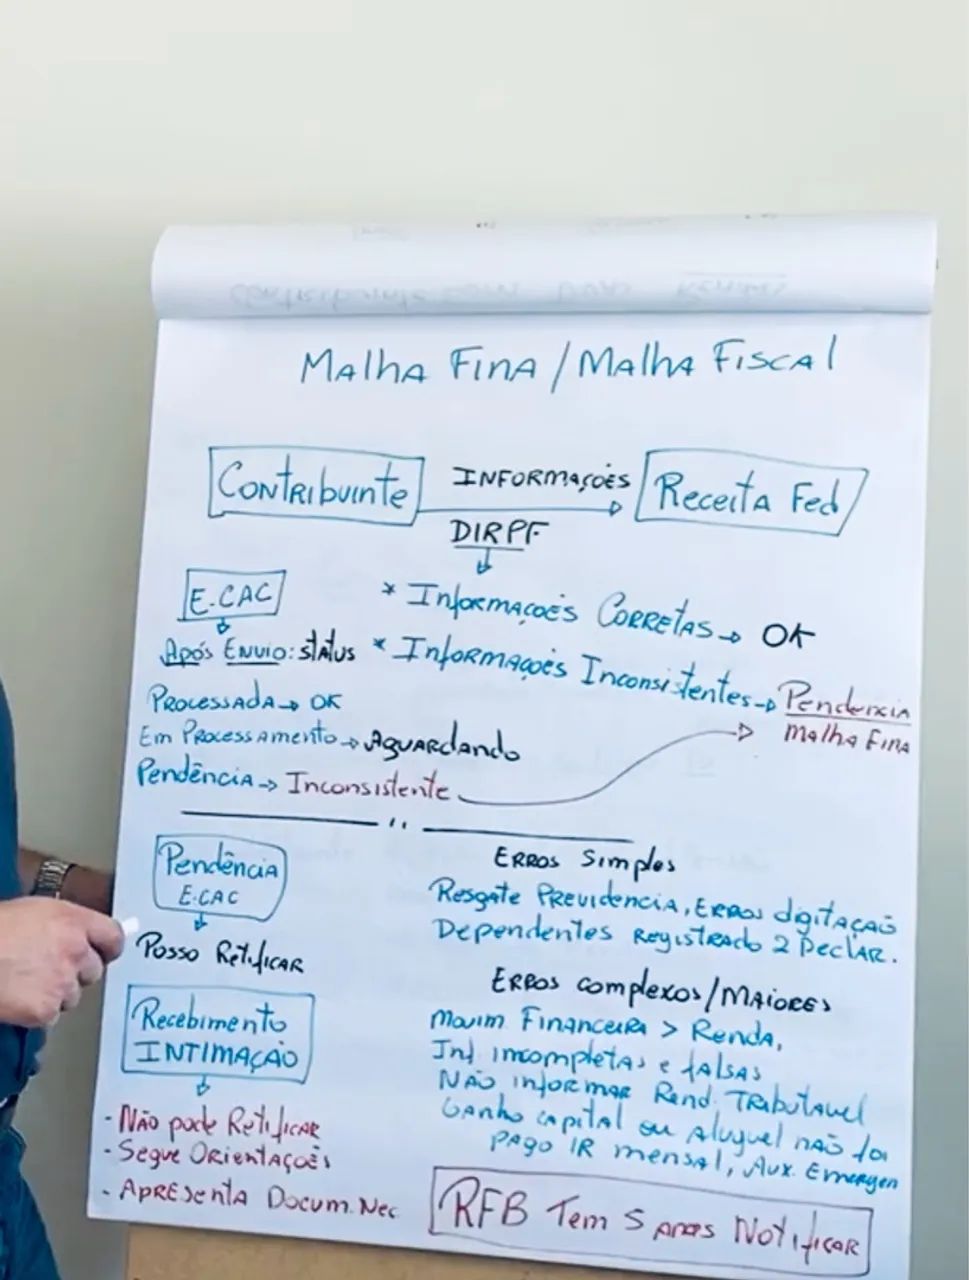 Malha Fina / Malha Fiscal
Contribuinte
INFORMAÇÕES
Receita Fed
DIRPF
E-CAC
* Informações Corretas → OK
Após Envio: status
* Informações Inconsistentes → Pendência
Malha Fina
Processada → OK
Em Processamento → Aguardando
Pendência → Inconsistente
Pendência
E-CAC
Posso Retificar
Recebimento
INTIMAÇÃO
- Não pode Retificar
- Segue Orientações
- Apresenta Docum. Nec
Erros Simples
Resgate Previdencia, Erros digitação
Dependentes Registrado 2 Declar.
Erros complexos/Maiores
Movim. Financeira > Renda,
Inf. incompletas e falsas
Não informar Rend. Tributavel
Ganho capital ou Aluguel não foi
pago IR mensal, Aux. Emergen
RFB Tem 5 anos Notificar